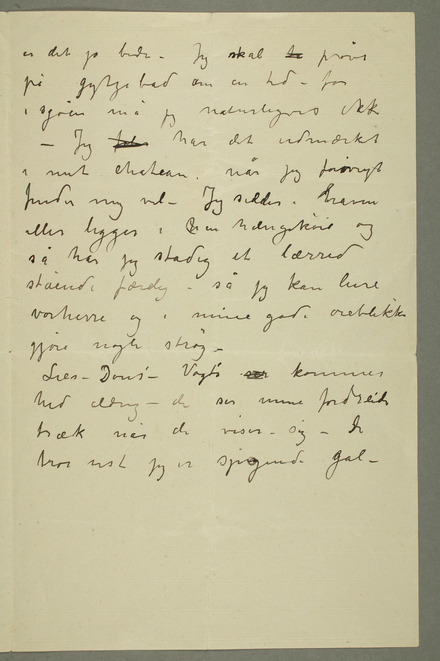 er det jo bedre – Jeg skal prøve
på gytjebad om en tid – for
i sjøen må jeg naturligvis ikke
– Jeg har det udmærket
i mit chateau, når jeg forøvrigt
finder mig vel – Jeg sidder i haven
eller ligger i en hængekøie og
så har jeg stadig et lærred
stående færdig – så jeg kan lure
vorherre og i mine gode øieblikke
gjøre nogle strøg –
Lies – Dons' – Vogts kommer
hid aldrig – de ser mine fordreide
træk når de viser sig – De
tror vist jeg er spigende gal –